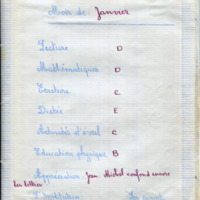 Mois de : Janvier
Lecture D
Mathématiques D
Ecriture C
Dictée E
Activités d'éveil C
Education physique B
Appréciation Jean Michel confond encore
les lettres
L'institutrice Les parents